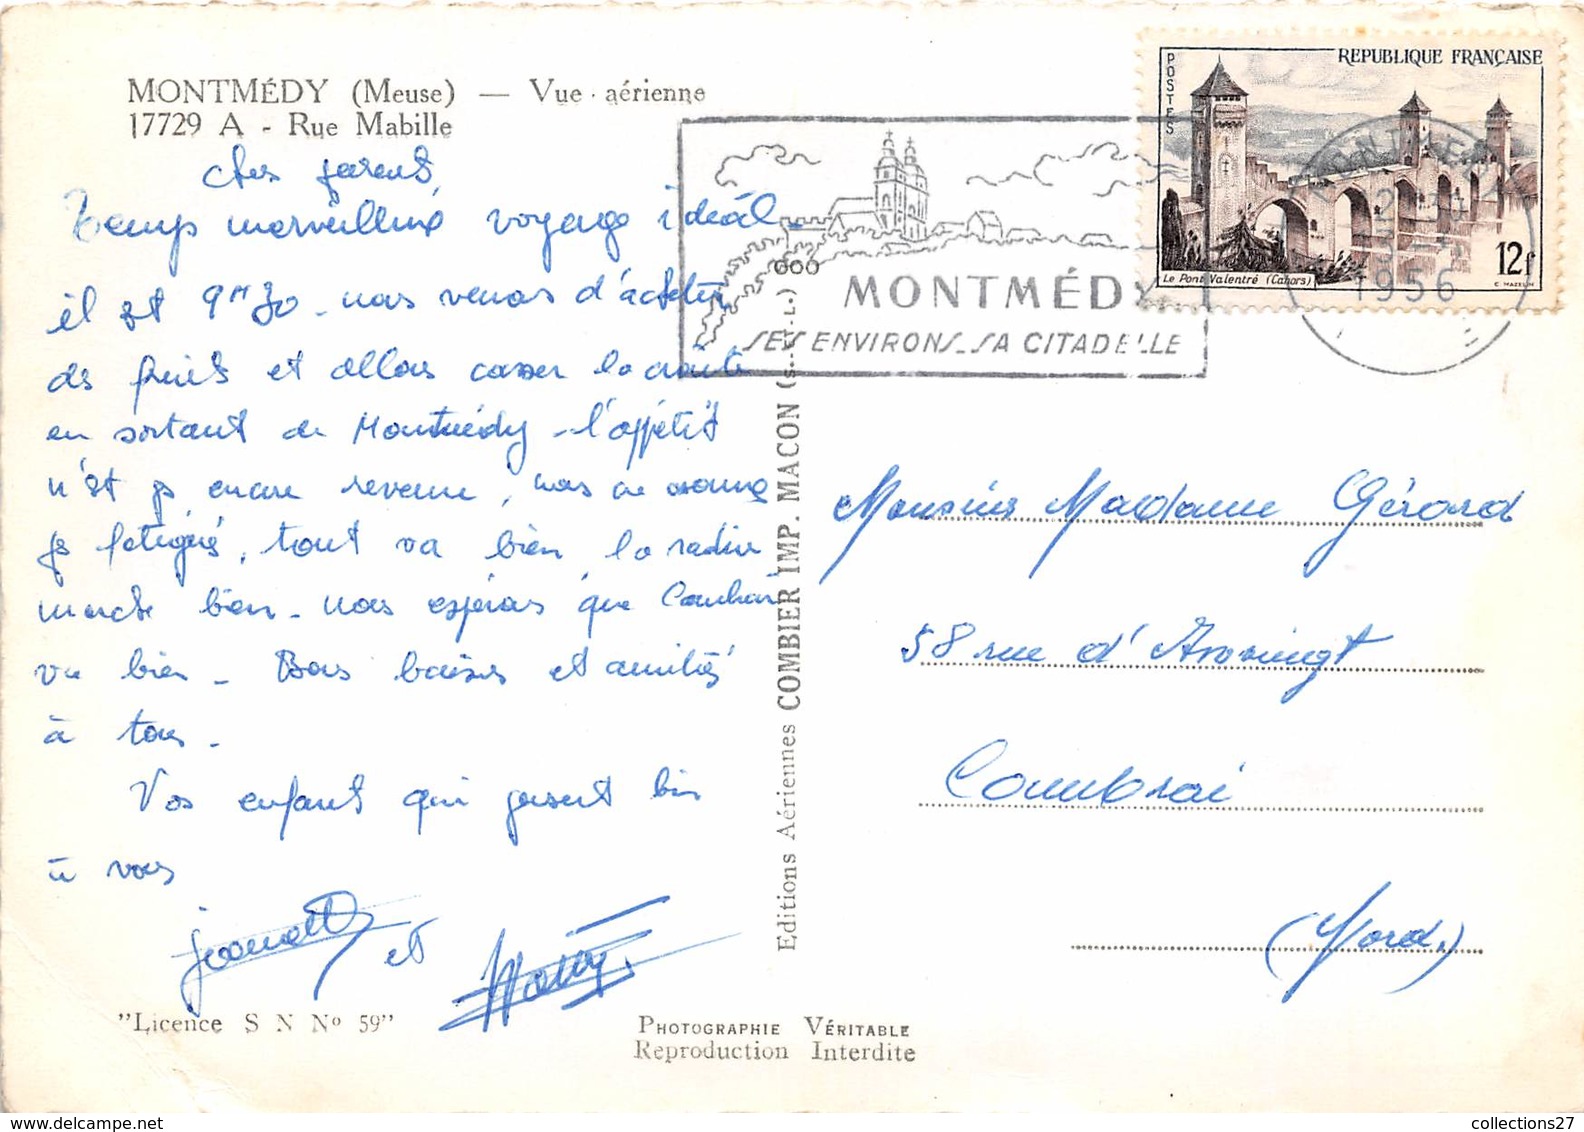 MONTMÉDY (Meuse) — Vue aérienne
17729 A - Rue Mabille
Chers parents,
Temps merveilleux voyage idéal.
il est 9H30 - nous venons d'acheter
des fruits et allons casser la croûte
en sortant de Montmédy - l'appétit
n'est ps encore revenu, nous ne sommes
ps fatigués, tout va bien la radio
marche bien - nous espérons que
va bien - Bons baisers et amitiés
à tous -
Vos enfant qui pensent bien
à vous
Jeannette et
"Licence S N No 59"
PHOTOGRAPHIE VÉRITABLE
Reproduction Interdite
Editions Aériennes COMBIER IMP. MACON (S.-ET-L.)
MONTMÉDY
SES ENVIRONS_SA CITADELLE
MONTMEDY
1956
POSTES
REPUBLIQUE FRANÇAISE
12f
Le Pont Valentré (Cahors)
C. MAZELIN
Monsieur Madame Gérard
58 rue d'
Cambrai
(Nord.)
collections27